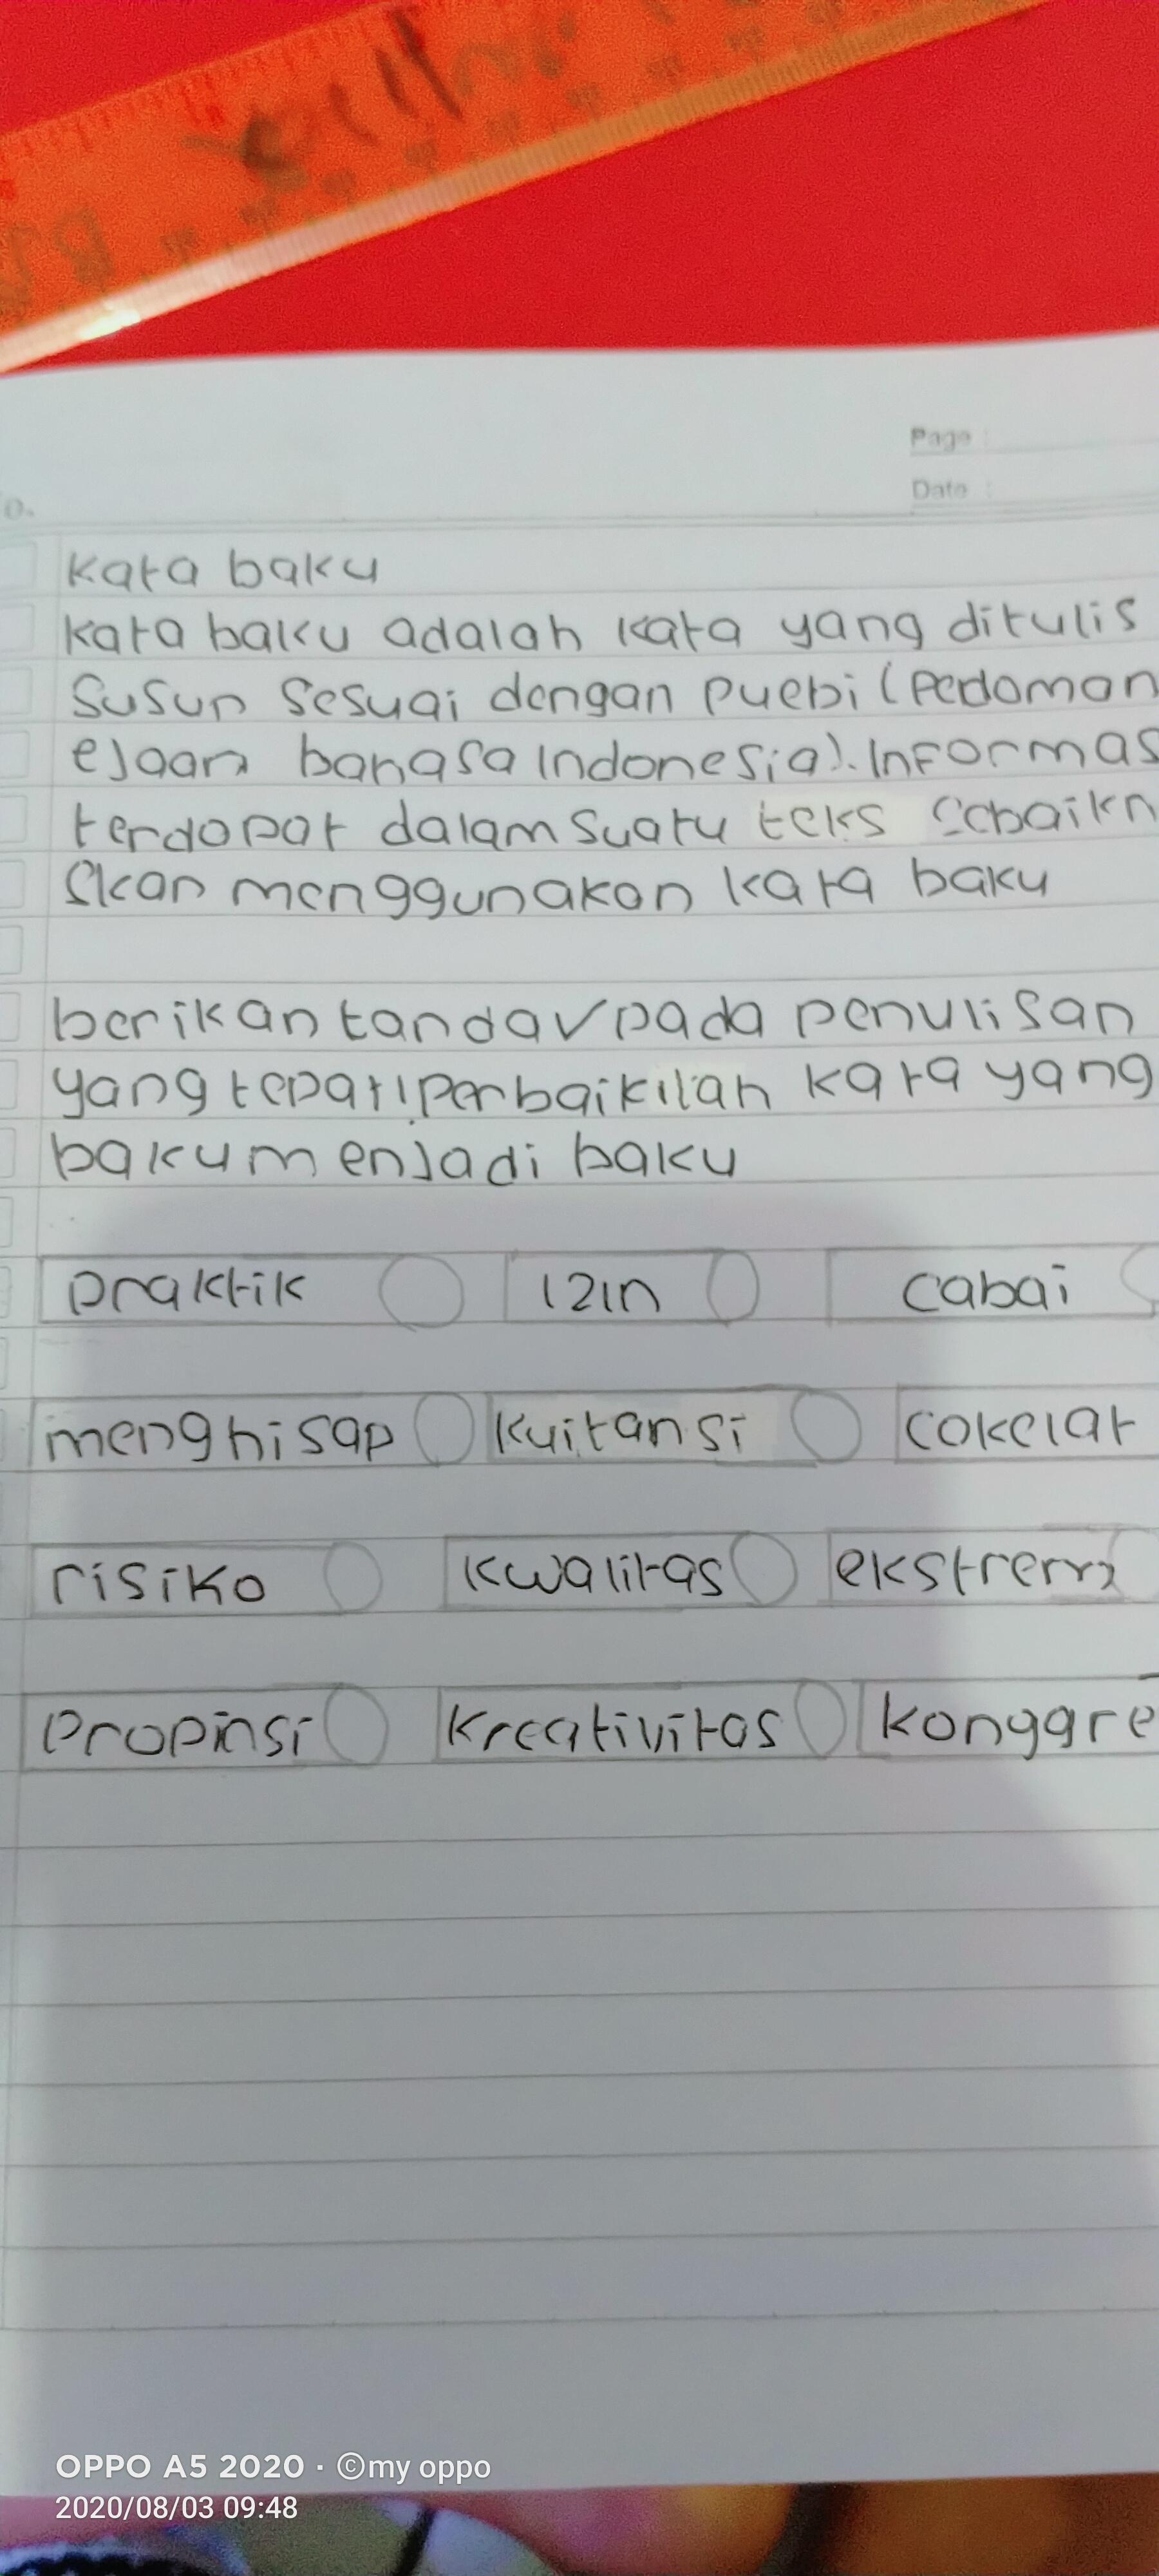 Page :
Date :
o.
kata baku
kata baku adalah kata yang ditulis
susun sesuai dengan puebi (pedoman
ejaan bahasa Indonesia). Informas
terdapat dalam suatu teks sebaikn
skan menggunakan kata baku
berikan tanda √ pada penulisan
yang tepat! perbaikilah kata yang
baku menjadi baku
praktik izin cabai
menghisap kuitansi cokelat
risiko kwalitas ekstrem
propinsi kreativitas konggre
OPPO A5 2020 · ©my oppo
2020/08/03 09:48